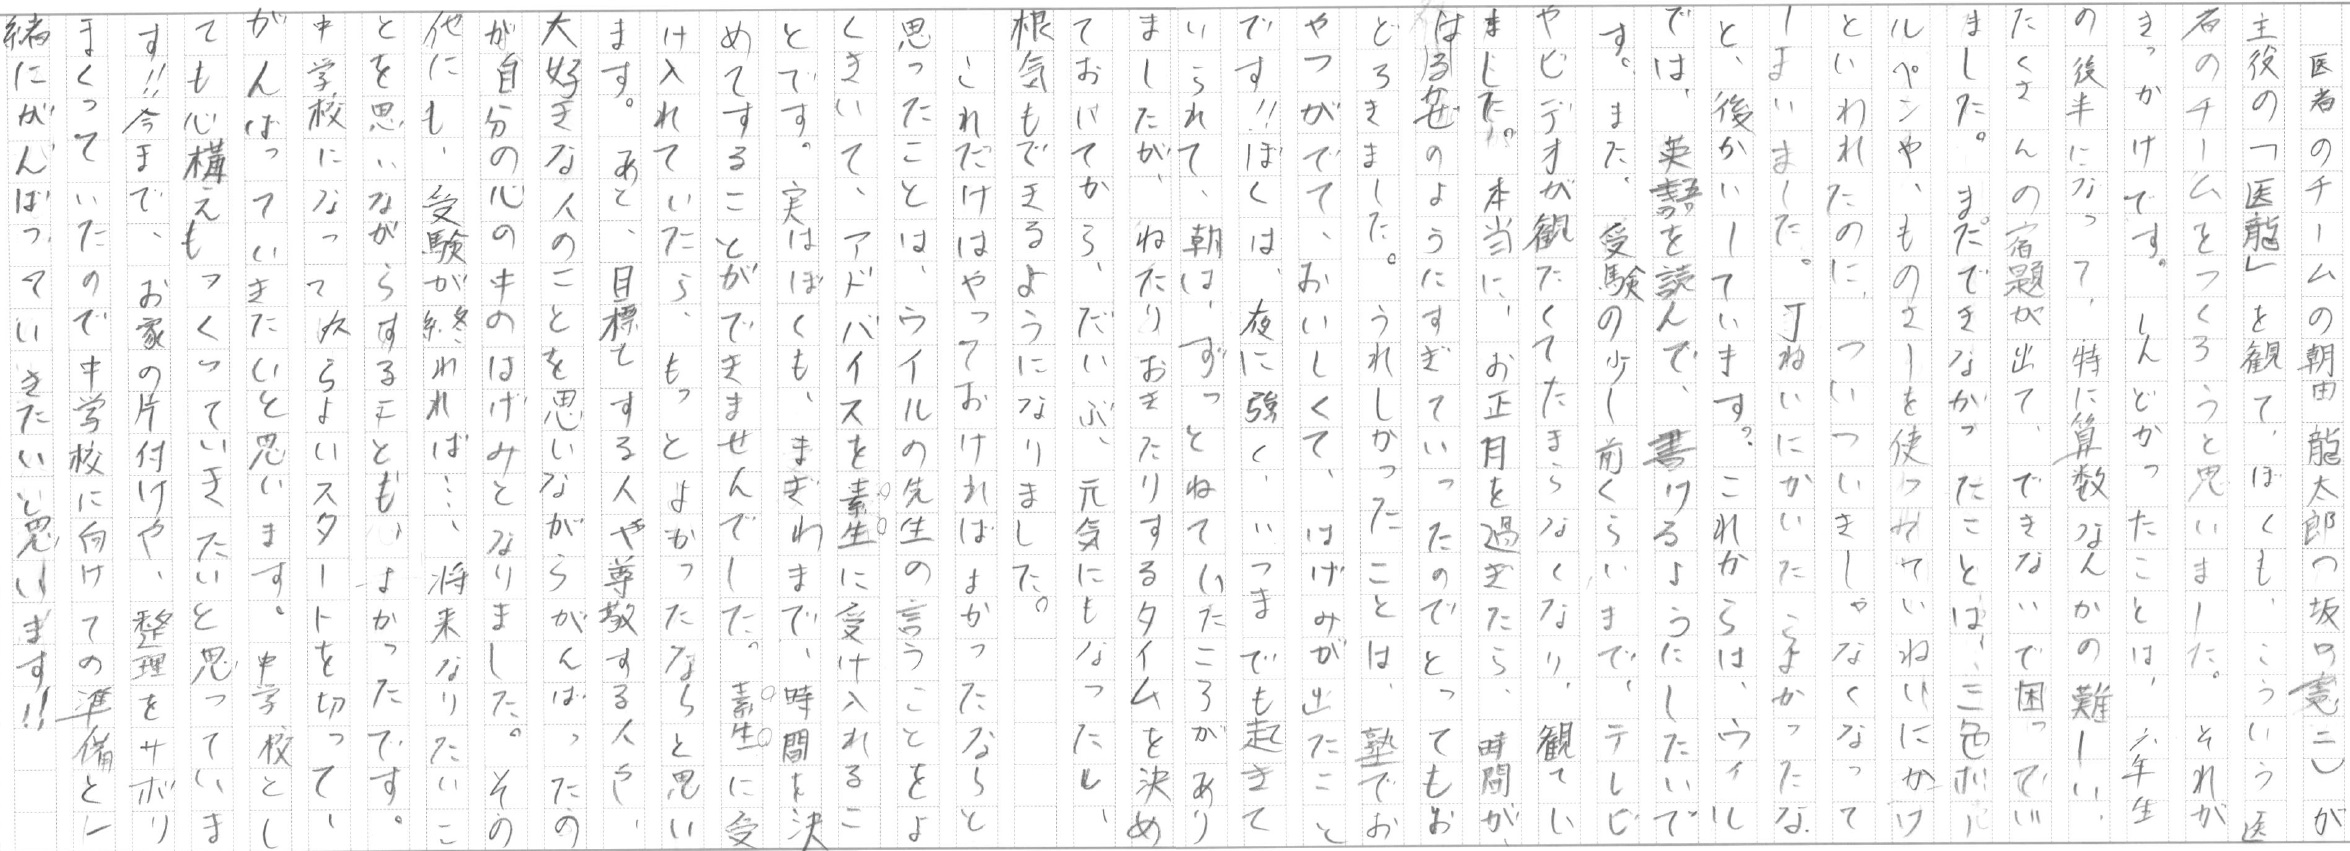 医者のチームの朝田龍太郎の坂口憲二)が
主役の「医龍」を観て、ぼくも、こういう医
者のチームをつくろうと思いました。それが
きっかけです。しんどかったことは、六年生
の後半になって、特に算数なんかの難しい、
たくさんの宿題が出て、できないで困ってい
ました。まだできなかったことは、三色ボー
ルペンや、ものさしを使ってていねいにかけ
といわれたのに、ついついきしゃなくなって
しまいました。丁ねいにかいたらよかったな
と、後かいしています。これからは、ウィル
では、英語を読んで、書けるようにしたいで
す。また、受験の少し前くらいまで、テレビ
やビデオが観たくてたまらなくなり、観てい
ました。本当に、お正月を過ぎたら、時間が、
はるかぜのようにすぎていったのでとってもお
どろきました。うれしかったことは、塾でお
やつがでて、おいしくて、はげみが出たこと
です!!ぼくは、夜に強く、いつまでも起きて
いられて、朝は、ずっとねていたころがあり
ましたが、ねたりおきたりするタイムを決め
ておいてから、だいぶ、元気にもなったし、
根気もできるようになりました。
これだけはやっておければよかったならと
思ったことは、ウイルの先生の言うことをよ
くきいて、アドバイスを素生に受け入れるこ
とです。実はぼくも、まぎわまで、時間を決
めてすることができませんでした。素生に受
け入れていたら、もっとよかったならと思い
ます。あと、目標とする人や尊敬する人や、
大好きな人のことを思いながらがんばったの
が自分の心の中のはげみとなりました。その
他にも、受験が終われば…、将来なりたいこ
とを思いながらすることも、よかったです。
中学校になって次らよいスタートを切って、
がんばっていきたいと思います。中学校とし
ても心構えもつくっていきたいと思っていま
す!!今まで、お家の片付けや、整理をサボり
まくっていたので中学校に向けての準備と一
緒にがんばっていきたいと思います!!